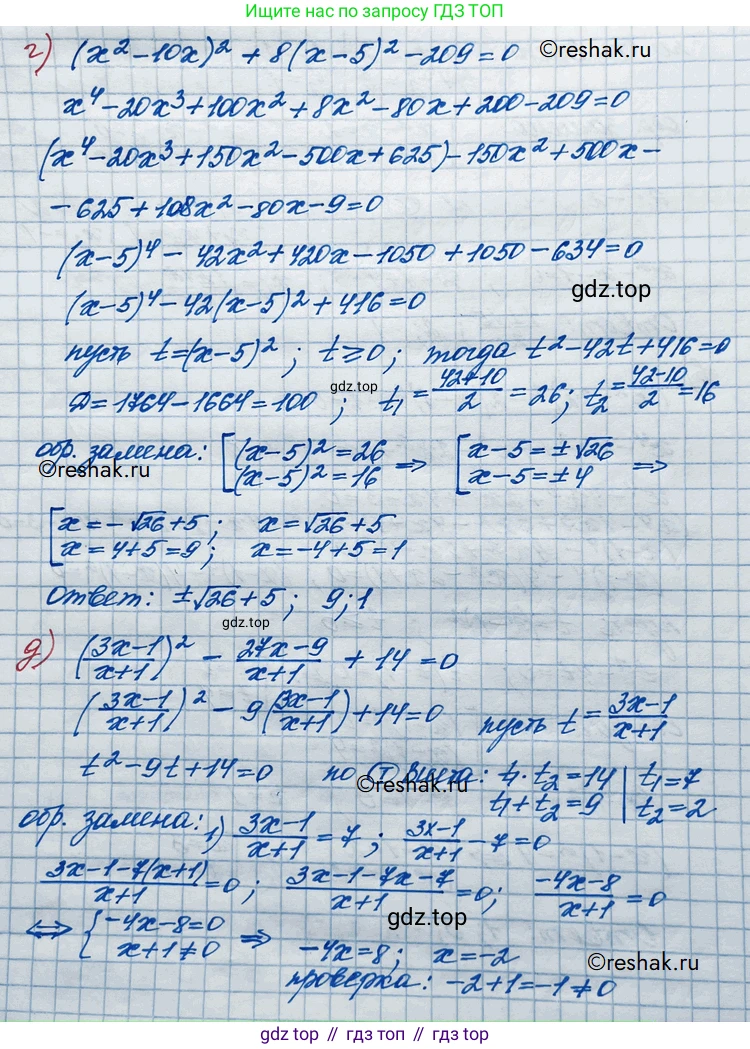 Ищите нас по запросу ГДЗ ТОП
г) (x² - 10x)² + 8(x - 5)² - 209 = 0 ©reshak.ru
x⁴ - 20x³ + 100x² + 8x² - 80x + 200 - 209 = 0
(x⁴ - 20x³ + 150x² - 500x + 625) - 150x² + 500x -
- 625 + 108x² - 80x - 9 = 0
(x - 5)⁴ - 42x² + 420x - 1050 + 1050 - 634 = 0
(x - 5)⁴ - 42(x - 5)² + 416 = 0 gdz.top
пусть t = (x - 5)²; t ≥ 0; тогда t² - 42t + 416 = 0
gdz.top
D = 1764 - 1664 = 100; t₁ = (42+10)/2 = 26; t₂ = (42-10)/2 = 16
обр. замена: [(x - 5)² = 26 ⇒ [x - 5 = ±√26
©reshak.ru (x - 5)² = 16 x - 5 = ±4 ⇒
[x = -√26 + 5; x = √26 + 5
x = 4 + 5 = 9; x = -4 + 5 = 1
Ответ: ±√26 + 5; 9; 1
gdz.top
д) ((3x-1)/(x+1))² - (27x-9)/(x+1) + 14 = 0
((3x-1)/(x+1))² - 9((3x-1)/(x+1)) + 14 = 0 пусть t = (3x-1)/(x+1)
t² - 9t + 14 = 0 по (т) Виета: t₁ · t₂ = 14 | t₁ = 7
gdz.top t₁ + t₂ = 9 | t₂ = 2
обр. замена: 1) (3x-1)/(x+1) = 7; (3x-1)/(x+1) - 7 = 0
(3x-1-7(x+1))/(x+1) = 0; (3x-1-7x-7)/(x+1) = 0; (-4x-8)/(x+1) = 0
gdz.top
⇔ {-4x - 8 = 0
x + 1 ≠ 0 ⇒ -4x = 8; x = -2
©reshak.ru
проверка: -2 + 1 = -1 ≠ 0
gdz top // гдз топ // gdz.top